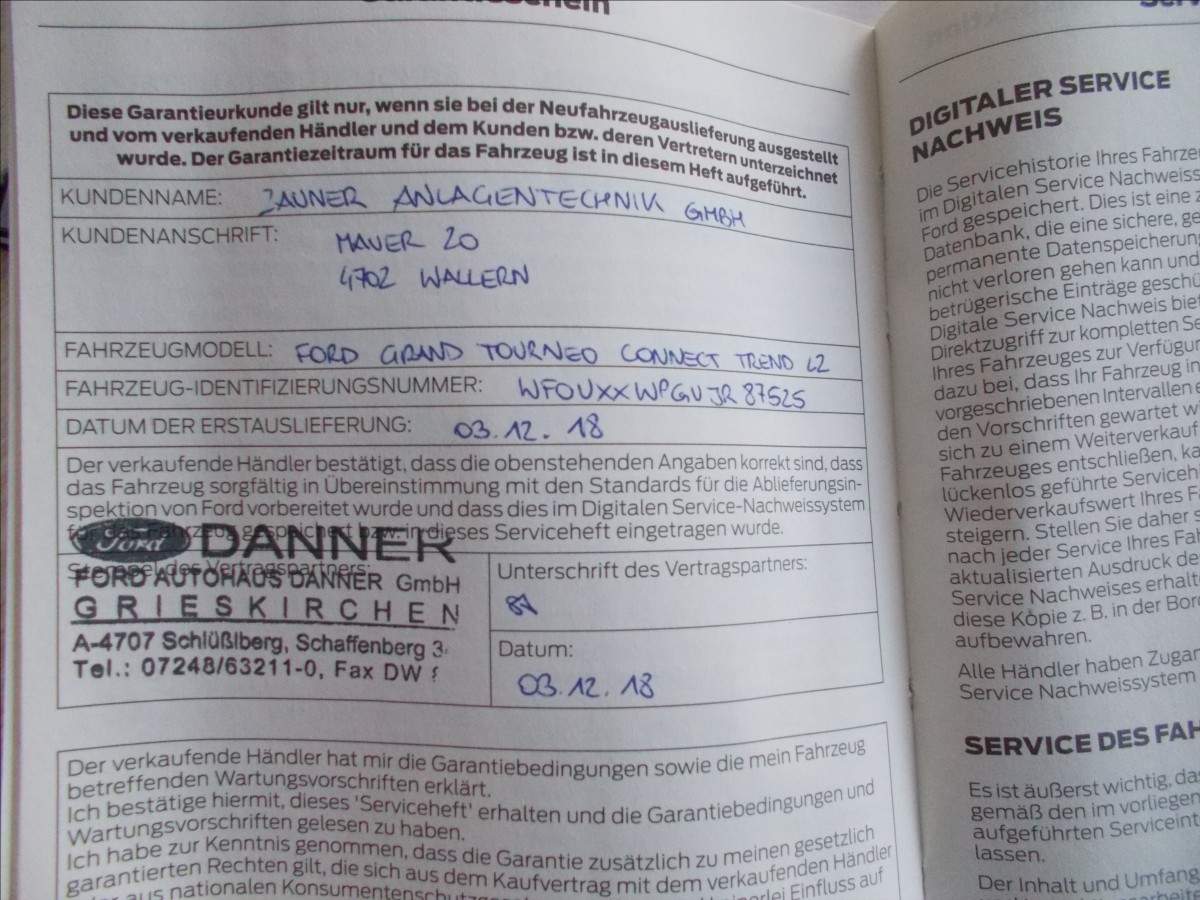 Diese Garantieurkunde gilt nur, wenn sie bei der Neufahrzeugauslieferung ausgestellt
und vom verkaufenden Händler und dem Kunden bzw. deren Vertretern unterzeichnet
wurde. Der Garantiezeitraum für das Fahrzeug ist in diesem Heft aufgeführt.
KUNDENNAME: ZAUNER ANLAGENTECHNIK GMBH
KUNDENANSCHRIFT: MAUER 20
4702 WALLERN
FAHRZEUGMODELL: FORD GRAND TOURNEO CONNECT TREND L2
FAHRZEUG-IDENTIFIZIERUNGSNUMMER: WF0UXXWPGUJR87525
DATUM DER ERSTAUSLIEFERUNG: 03.12.18
Der verkaufende Händler bestätigt, dass die obenstehenden Angaben korrekt sind, dass
das Fahrzeug sorgfältig in Übereinstimmung mit den Standards für die Ablieferungsin-
spektion von Ford vorbereitet wurde und dass dies im Digitalen Service-Nachweissystem
für das Fahrzeug gespeichert bzw. in dieses Serviceheft eingetragen wurde.
Stempel des Vertragspartners:
Ford DANNER
FORD AUTOHAUS DANNER GmbH
GRIESKIRCHEN
A-4707 Schlüßlberg, Schaffenberg 3
Tel.: 07248/63211-0, Fax DW
Unterschrift des Vertragspartners:
Datum:
03.12.18
Der verkaufende Händler hat mir die Garantiebedingungen sowie die mein Fahrzeug
betreffenden Wartungsvorschriften erklärt.
Ich bestätige hiermit, dieses 'Serviceheft' erhalten und die Garantiebedingungen und
Wartungsvorschriften gelesen zu haben.
Ich habe zur Kenntnis genommen, dass die Garantie zusätzlich zu meinen gesetzlich
garantierten Rechten gilt, die sich aus dem Kaufvertrag mit dem verkaufenden Händler
aus nationalen Einfluss auf
DIGITALER SERVICE
NACHWEIS
Die Servicehistorie Ihres Fahrze
im Digitalen Service Nachweiss
Ford gespeichert. Dies ist eine
Datenbank, die eine sichere, ge
permanente Datenspeicherun
nicht verloren gehen kann und
betrügerische Einträge geschü
Digitale Service Nachweis bie
Direktzugriff zur kompletten Se
Ihres Fahrzeuges zur Verfügur
dazu bei, dass Ihr Fahrzeug in
vorgeschriebenen Intervallen e
den Vorschriften gewartet wi
sich zu einem Weiterverkauf
Fahrzeuges entschließen, ka
lückenlos geführte Serviceh
Wiederverkaufswert Ihres F
steigern. Stellen Sie daher s
nach jeder Service Ihres Fah
aktualisierten Ausdruck de
Service Nachweises erhalt
diese Kopie z. B. in der Bor
aufbewahren.
Alle Händler haben Zugan
Service Nachweissystem
SERVICE DES FAH
Es ist äußerst wichtig, da
gemäß den im vorliegen
aufgeführten Serviceint
lassen.
Der Inhalt und Umfang